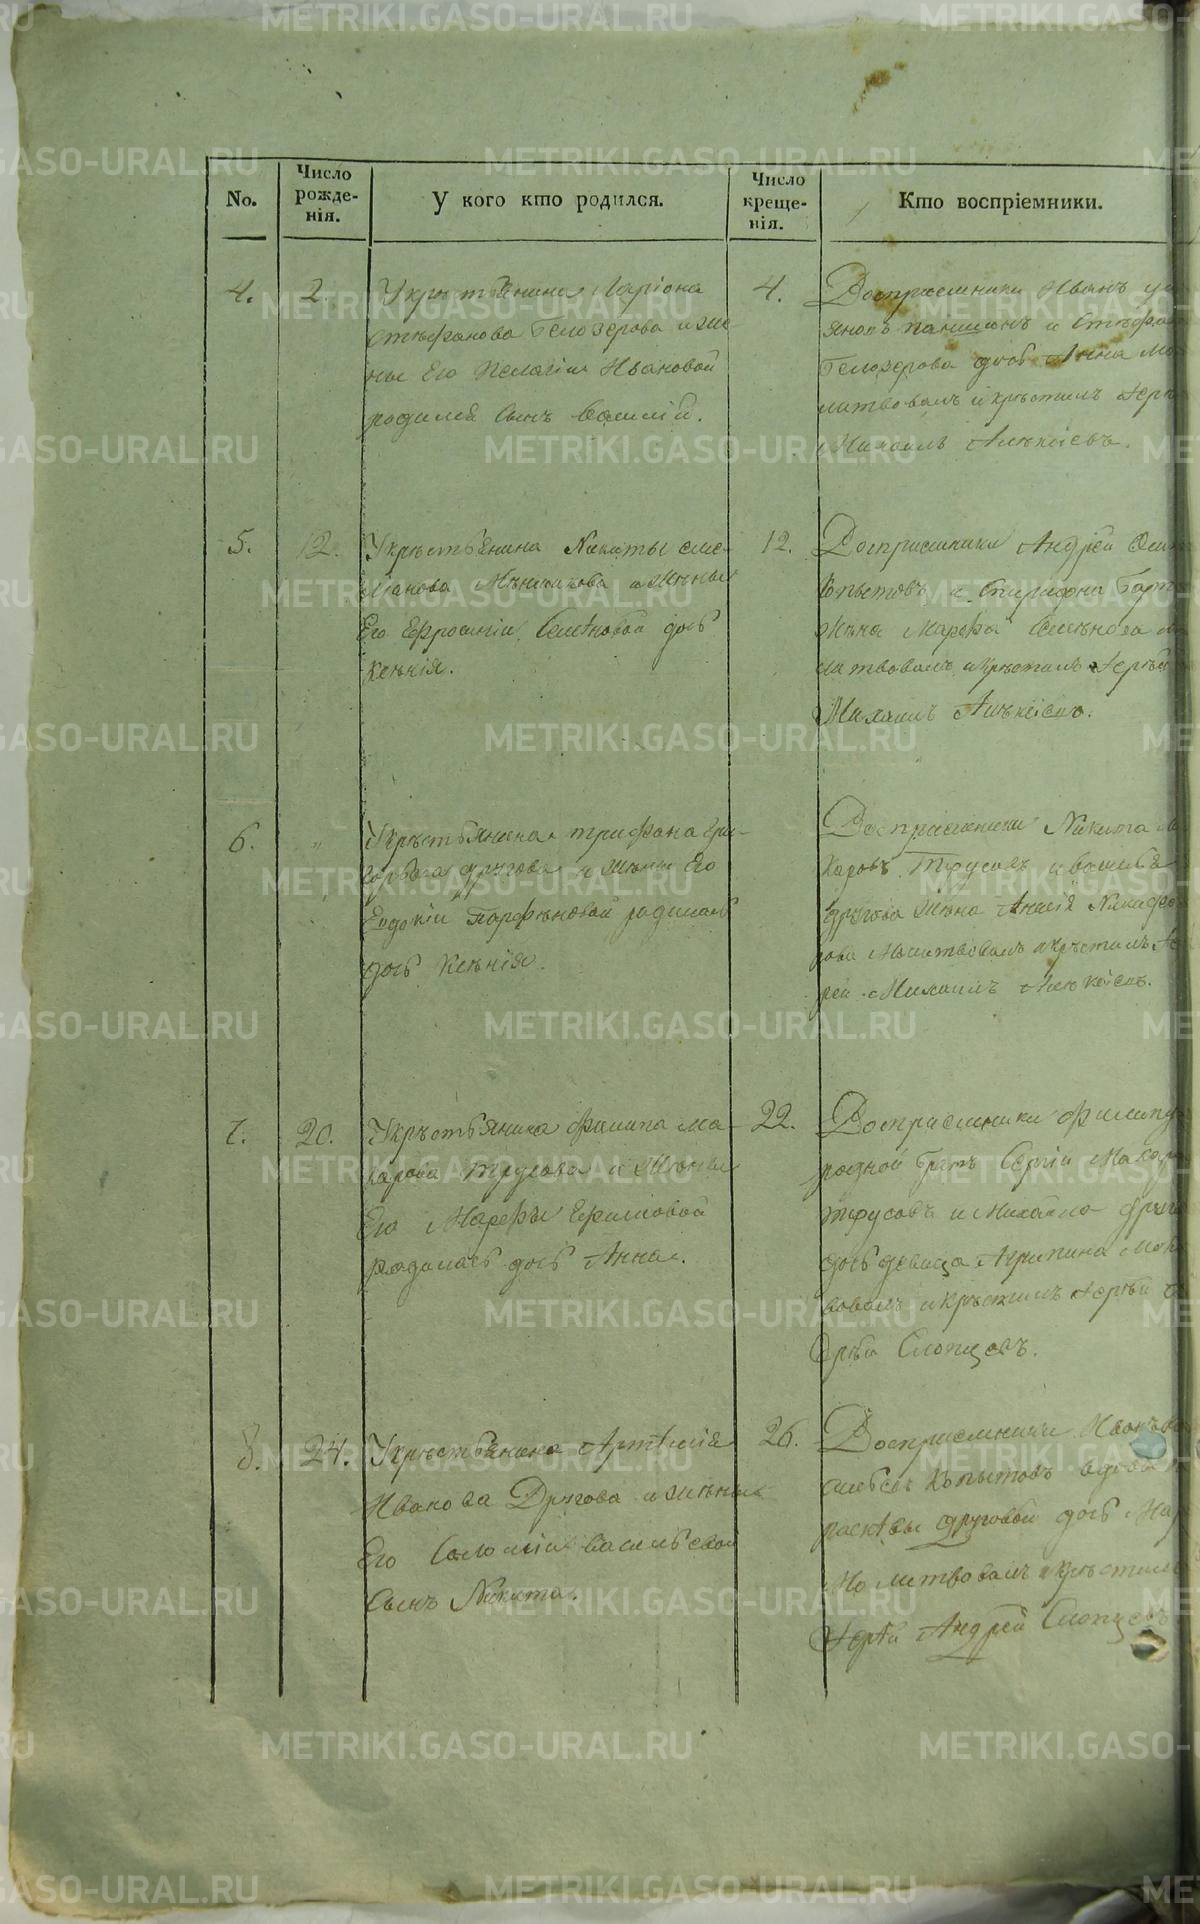 No.
Число рожде-нія.
У кого кто родился.
Число креще-нія.
Кто воспріемники.
4.
2.
У крѣстьянина Ларіона
Стѣфанова Белозерова и же
ны Его Пелагіи Ивановой
родился Сынъ Василій.
4.
Воспріемники Иванъ
и Стѣфа
Белозерова дочь Анна Мо
литвовалъ и крѣстилъ Іерѣ
Михаилъ Алѣксіевъ.
5.
12.
У крѣстьянина Никиты
Мѣншикова и жѣны
Его Ефросиніи Семѣновой дочь
Ксѣнія.
12.
Воспріемники Андрей
Копытовъ и Спиридона
Жѣна Марфа Семѣнова
литвовалъ и крѣстилъ Іерѣй
Михаилъ Алѣксіевъ.
6.
"
У крѣстьянина трифана Гри-
горьева другова и жѣны Его
Евдокіи Парфѣновой родилась
дочь Ксѣнія.
Воспріемники Никита Ма
каровъ Трусовъ и Василья
другова жѣна Анисія Никифо
рова Молитвовалъ и крѣстилъ Іе
рей Михаилъ Алѣксіевъ.
7.
20.
У крѣстьянина Филипа Ма-
карова Трусова и жѣны
Его Марфы Ефимовой
родилась дочь Анна.
22.
Воспріемники Филипу
родной братъ Сергій Макаро
Трусовъ и Михайла друго
дочь девица Агрипина Моли
вовалъ и крѣстилъ Іерѣй
Слопцовъ.
8.
24.
У крѣстьянина Артѣмія
Иванова Другова и жѣны
Его Соломіи Васильевой
Сынъ Никита.
26.
Воспріемники Иванъ
Копытовъ вдовы
раскѣвы друговой дочь Мар
Молитвовалъ и крѣстилъ
Іерѣй Андрей Слопцовъ